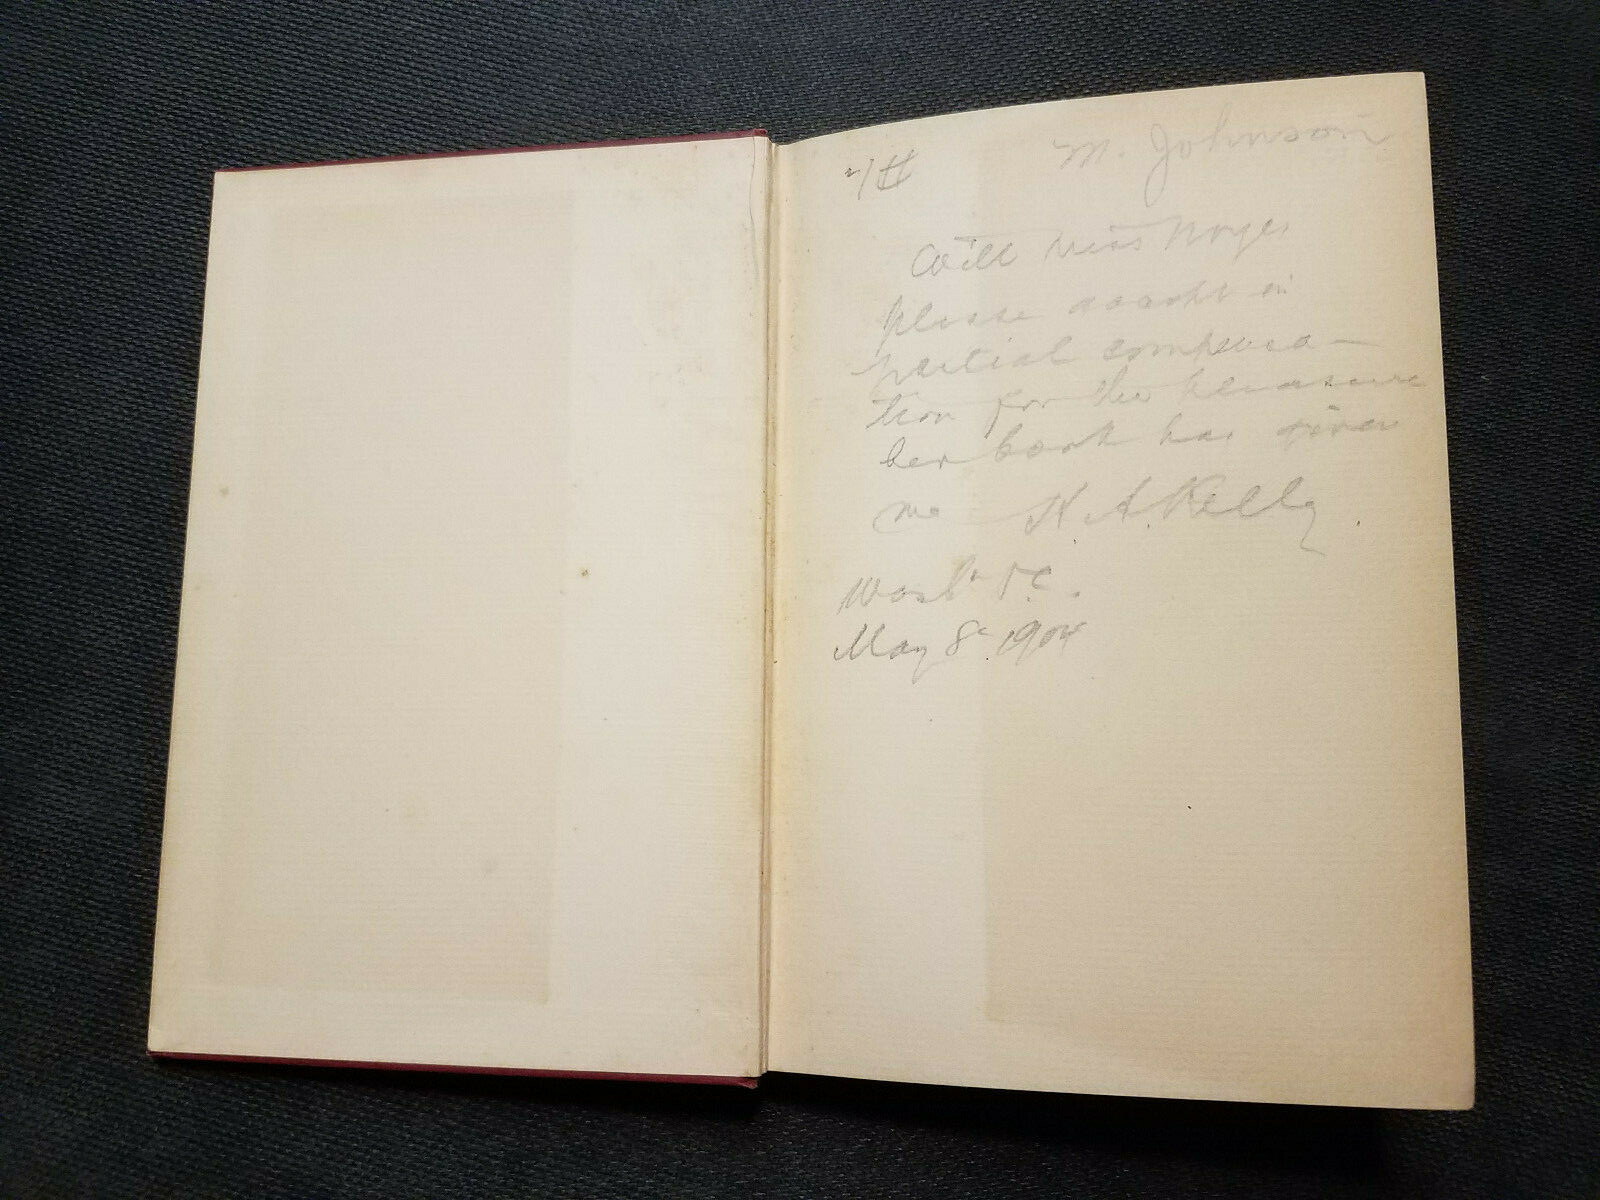 M. Johnson
Will Miss Noyes
please accept in
partial compensa-
tion for the pleasure
her book has given
me H. A. Kelly
Washn D.C.
May 8 1904